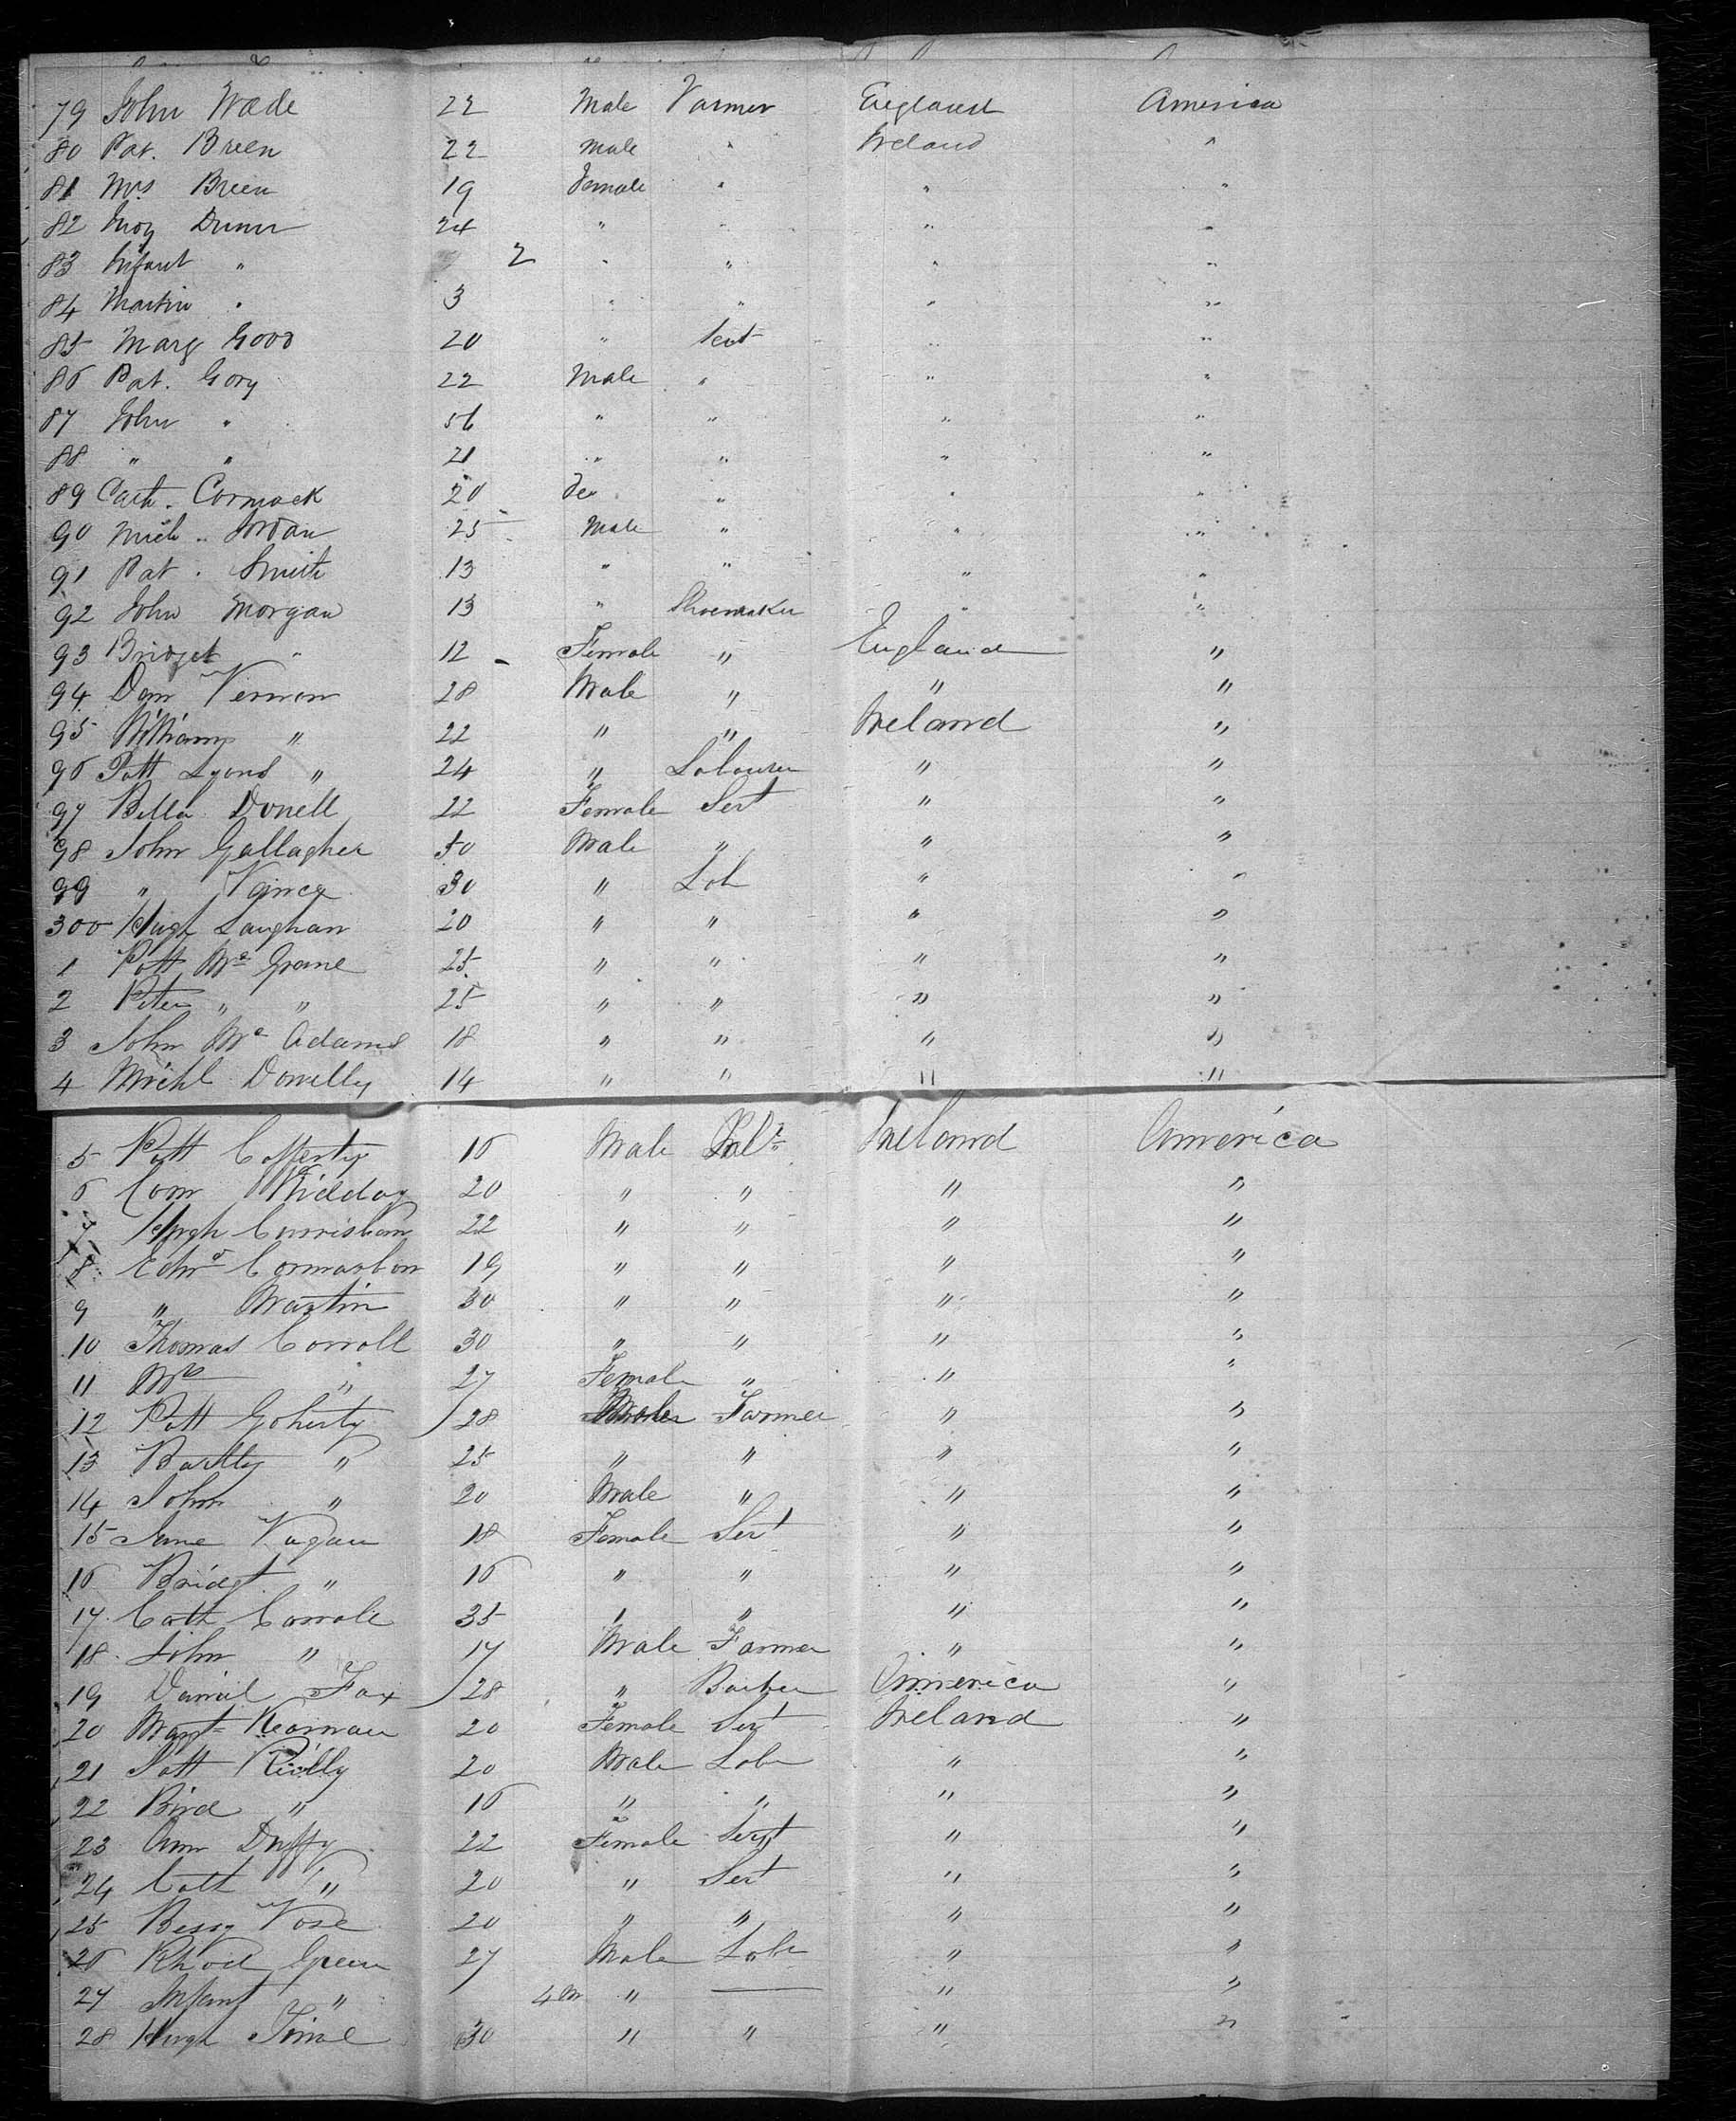 79 John Wade 22 Male Farmer England America
80 Pat. Breen 22 Male " Ireland "
81 Mrs Breen 19 Female " " "
82 Dunn 24 " " " "
83 Infant " 2 " " " "
84 Martin " 3 " " " "
85 Marg Good 20 " Sevt " "
86 Pat. Gory 22 Male " " "
87 John " 56 " " " "
88 " " 21 " " " "
89 Cath. Cormack 20 Fe " " "
90 Mich .. Jordan 25 Male " " "
91 Pat. Smith 13 " " " "
92 John Morgan 13 " Shoemaker " "
93 Bridget " 12 Female " England "
94 Dan Vernon 28 Male " " "
95 William " 22 " " Ireland "
96 Patt Lyons " 24 " Labourer " "
97 Bella Donell 22 Female Sert " "
98 John Gallagher 50 Male " " "
99 " 30 " Lab " "
300 Hugh Laughan 20 " " " "
1 Patt Mc Grane 25 " " " "
2 Peter " " 25 " " " "
3 John Mc Adams 18 " " " "
4 Michl Donnelly 14 " " " "
5 Patt Cafferty 16 Male Labr Ireland America
6 Com 20 " " " "
7 Hugh 22 " " " "
8 Edwd 19 " " " "
9 " Martin 30 " " " "
10 Thomas Carroll 30 " " " "
11 Mrs " 27 Female " " "
12 Patt Goherty 28 Male Farmer " "
13 Bartly " 25 " " " "
14 John " 20 Male " " "
15 Jane Fagan 18 Female Sert " "
16 Bridgt " 16 " " " "
17 Cath Carrole 35 " " " "
18 John " 17 Male Farmer " "
19 Daniel Fox 28 " Barber America "
20 Margt Kearnan 20 Female Sert Ireland "
21 Patt Reilly 20 Male Labr " "
22 Bird " 16 " " " "
23 Ann Duffy 22 Female Servt " "
24 Cath " 20 " Sert " "
25 Bessy Vose 20 " " " "
26 Green 27 Male Labr " "
27 Infant " 4m " — " "
28 Hugh 30 " " " "